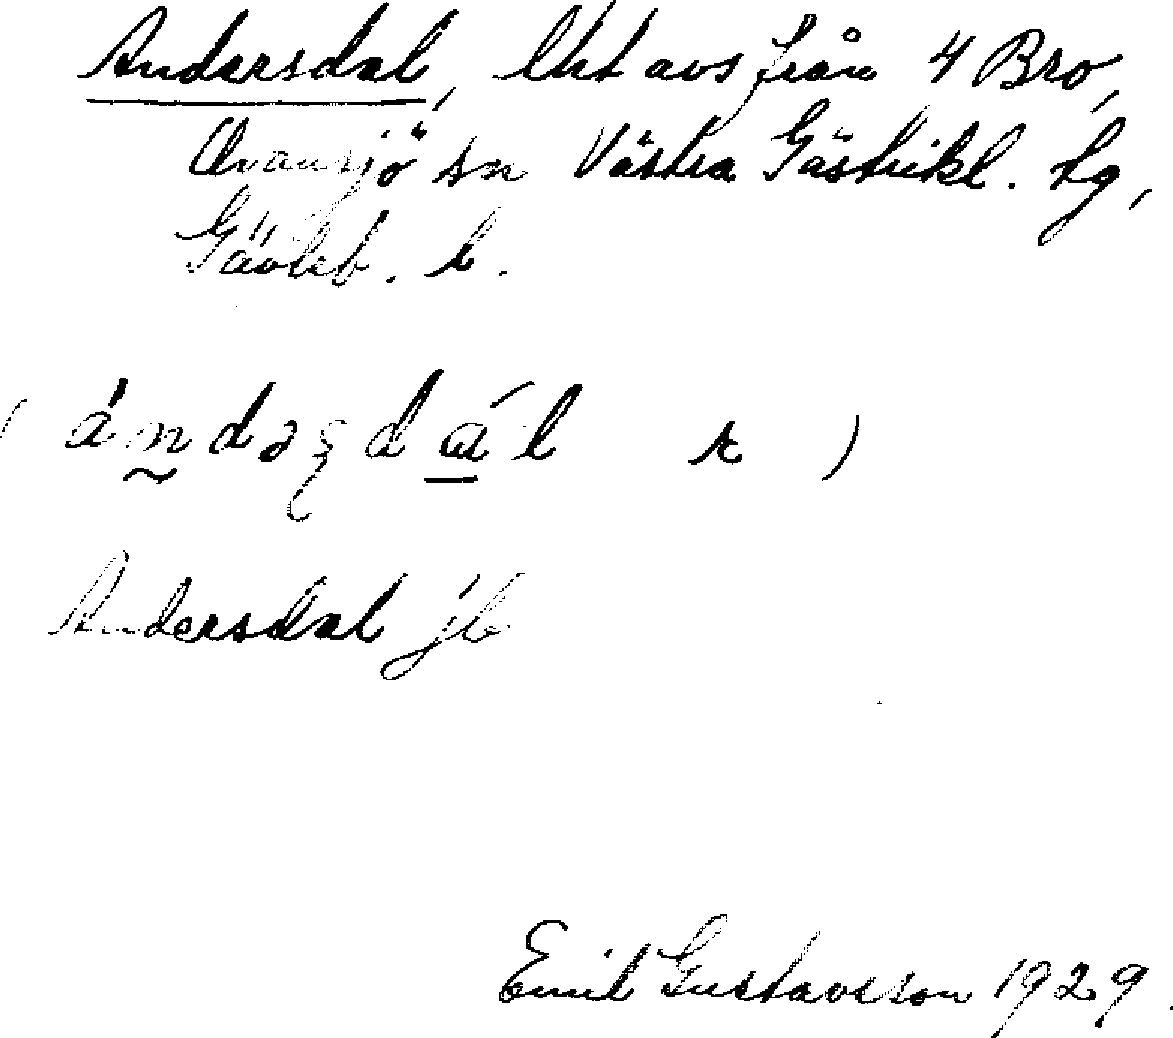 Andersdal, lht avs från 4 Bro,
Ovansjö sn Västra Gästrikl. tg,
Gävleb. l.
Andersdal jb
Emil Gustavsson 1929.